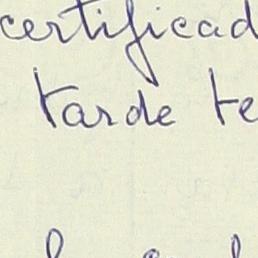 certificad
tarde te